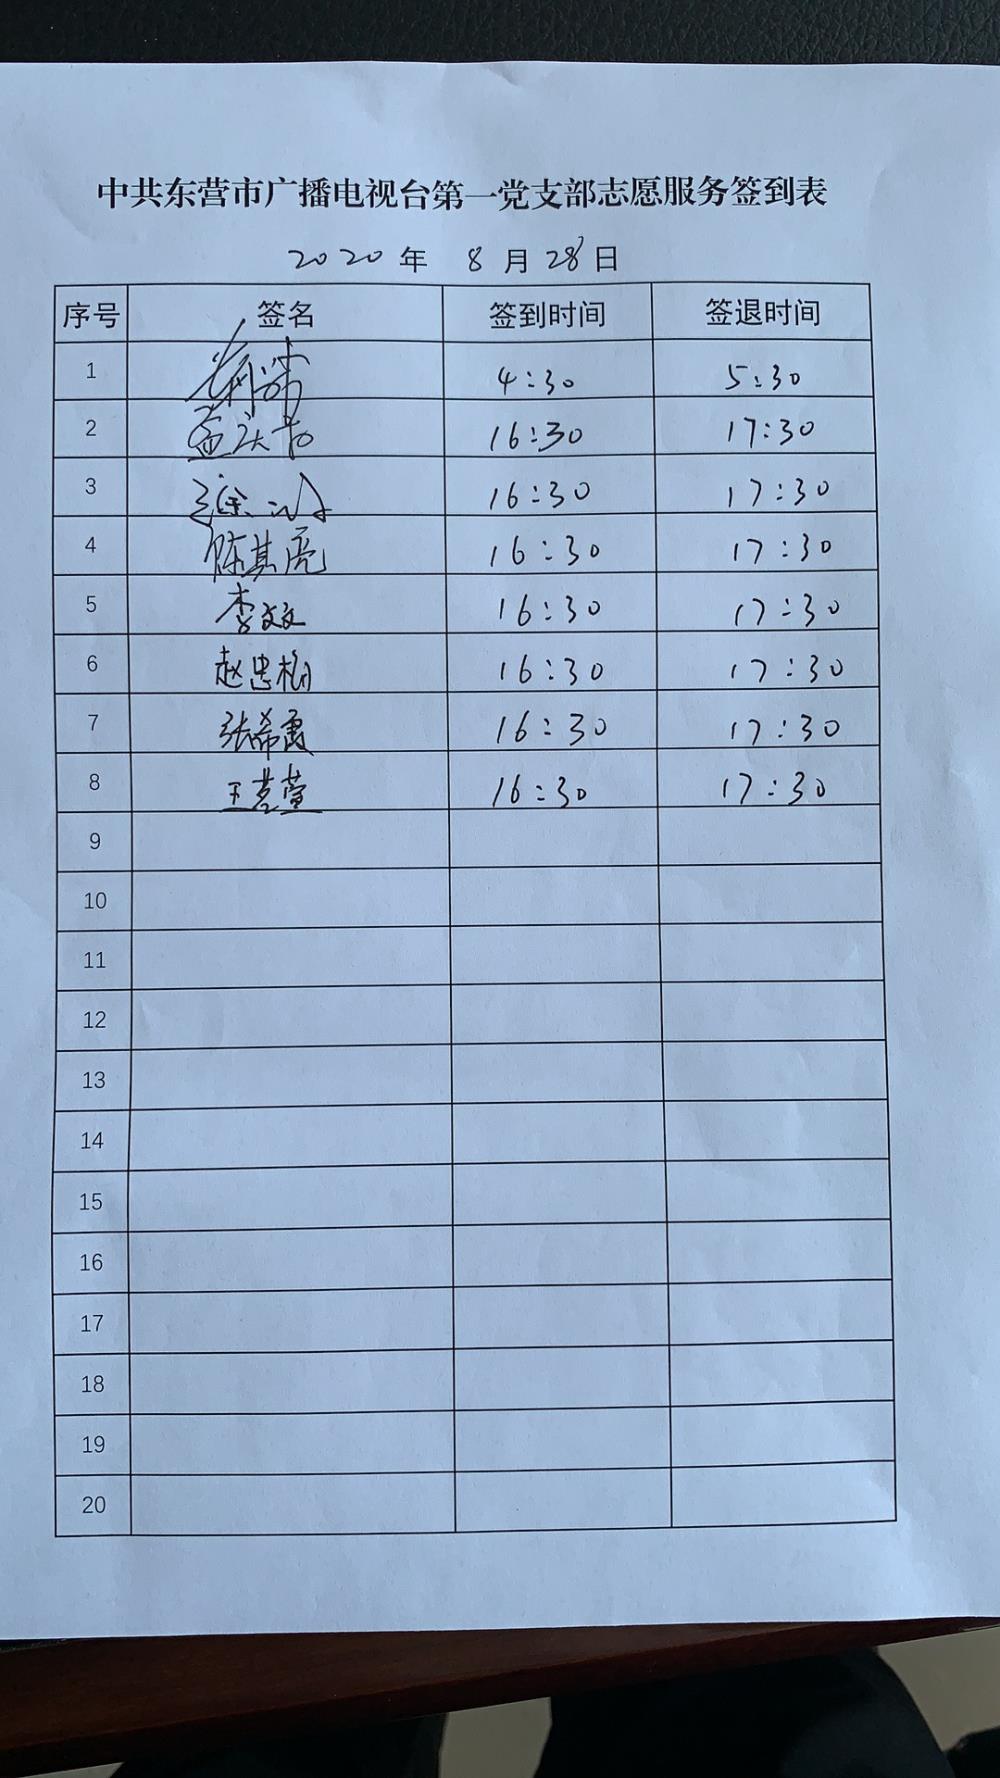 中共东营市广播电视台第一党支部志愿服务签到表
2020年 8月28日
序号 签名 签到时间 签退时间
1 4:30 5:30
2 16:30 17:30
3 16:30 17:30
4 陈其亮 16:30 17:30
5 李文文 16:30 17:30
6 赵忠梅 16:30 17:30
7 张希霞 16:30 17:30
8 王茗萱 16:30 17:30
9
10
11
12
13
14
15
16
17
18
19
20